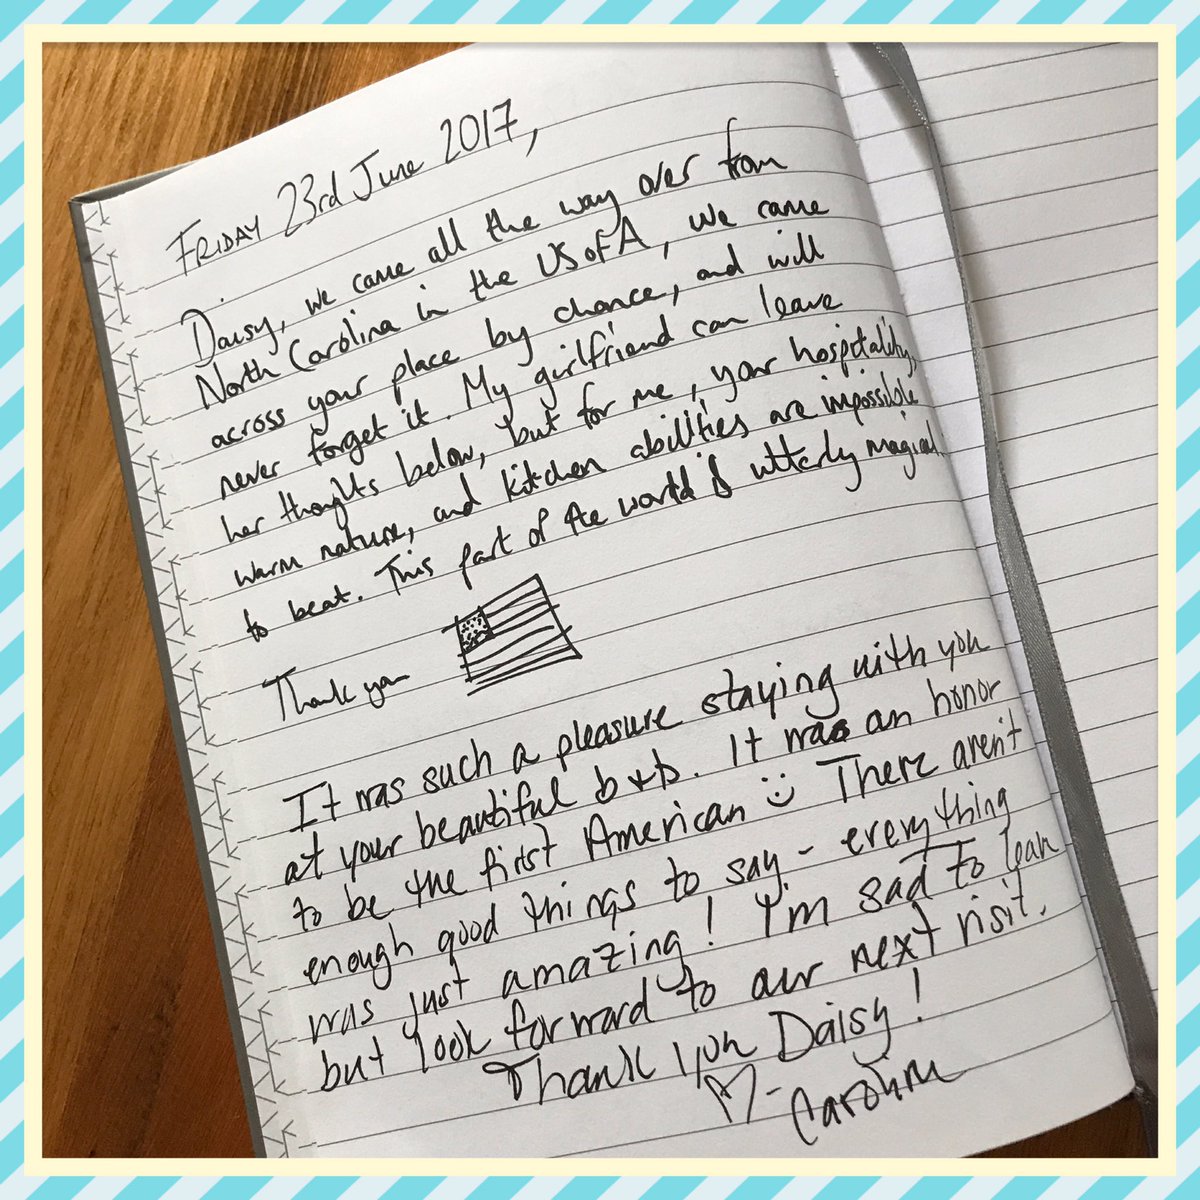 FRIDAY 23rd June 2017,
Daisy, we came all the way over from
North Carolina in the US of A, we came
across your place by chance, and will
never forget it. My girlfriend can leave
her thoughts below, but for me, your hospitality,
warm nature, and kitchen abilities are impossible
to beat. This part of the world is utterly magical.
Thank you
It was such a pleasure staying with you
at your beautiful b+b. It was an honor
to be the first American :) There aren't
enough good things to say - everything
was just amazing! I'm sad to leave
but look forward to our next visit.
Thank you Daisy!
♡ - Caroline